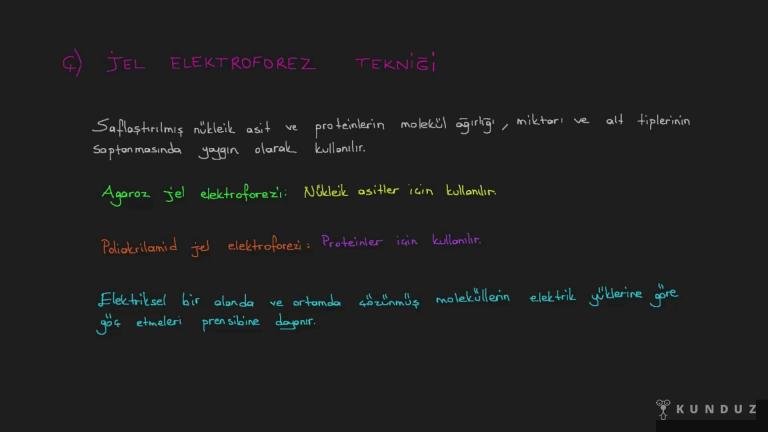 Ç) JEL ELEKTROFOREZ TEKNİĞİ
Saflaştırılmış nükleik asit ve proteinlerin molekül ağırlığı, miktarı ve alt tiplerinin
saptanmasında yaygın olarak kullanılır.
Agaroz jel elektroforezi: Nükleik asitler için kullanılır.
Poliakrilamid jel elektroforezi: Proteinler için kullanılır.
Elektriksel bir alanda ve ortamda çözünmüş moleküllerin elektrik yüklerine göre
göç etmeleri prensibine dayanır.
KUNDUZ